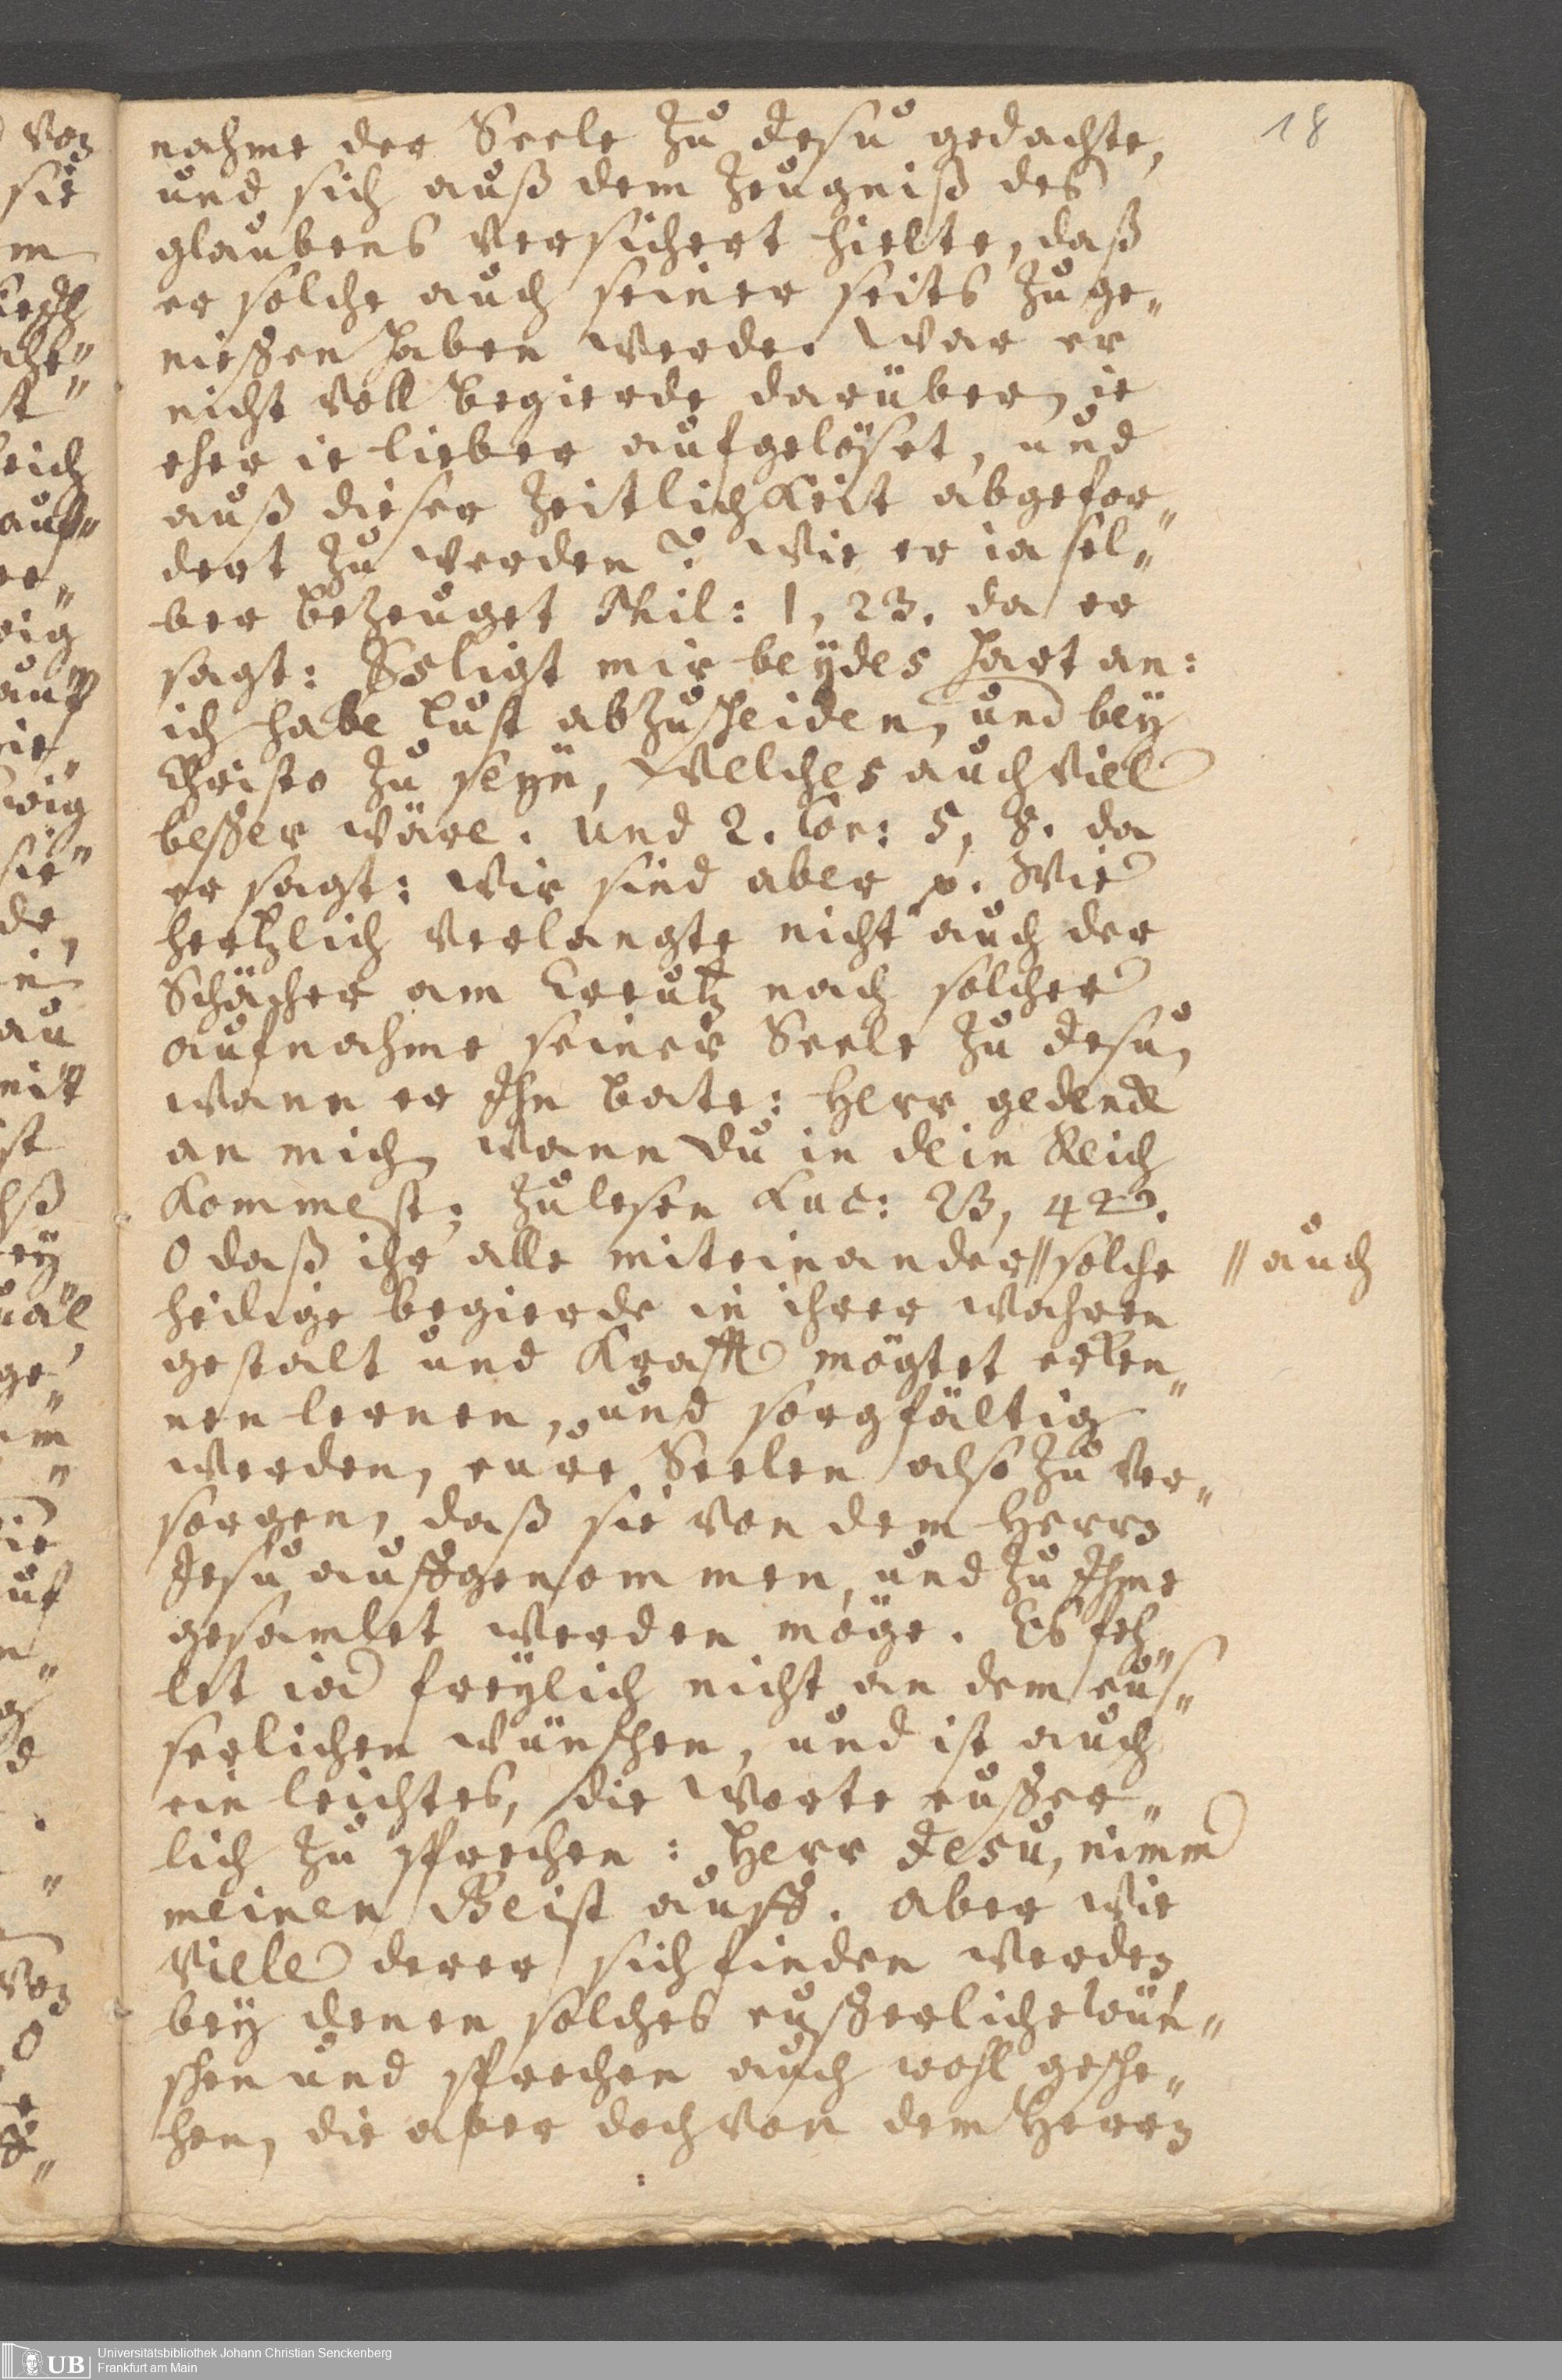 18
nahme der Seele zu Jesu gedachte,
und sich auß dem Zeugniß des
glaubens versichert hielte, daß
er solche auch seiner seits zu ge„
nießen haben werde. War er
nicht voll begierde darüber, je
eher ie lieber aufgelößet, und
auß dieser Zeitlichkeit abgefor„
dert zu werden? Wie er ia sel„
ber bezeuget Phil: 1, 23. da er
sagt: Es ligt mir beydes hart an:
ich habe lust abzuscheiden, und bey
Christo zu seyn, welches auch viel
beßer wäre. und 2. Cor: 5, 8. da
er sagt: wir sind aber p. Wie
hertzlich verlangte nicht auch der
Schächer am Creutz nach solcher
aufnahme seiner Seele zu Jesu,
wann er Ihn bate: Herr gedenck
an mich, wann du in dein Reich
kommest; zulesen Luc: 23, 42.
O daß ihr alle miteinander // solche // auch
heilige begierde in ihrer wahren
gestalt und Krafft mögtet erken„
nen lernen, und sorgfältig
werden, eure Seelen also zu ver„
sorgen, daß sie von dem Herrn
Jesu auffgenommen, und zu Ihme
gesamlet werden möge. Es feh„
let ia freylich nicht an dem eus„
serlichen wünschen, und ist auch
ein leichtes, die Worte eußer„
lich zu sprechen: Herr Jesu, nimm
meinen Geist auff. Aber wie
viele derer sich finden werden,
bey denen solches eußerliche wün„
schen und sprechen auch wohl gesche„
hen, die aber doch von dem Herrn
von
sie
m
leich
auf„
ewig
auff
ewig
sie„
de,
au
mit
ist
ey
ge„
im
uf
d
von
O
UB Universitätsbibliothek Johann Christian Senckenberg
Frankfurt am Main